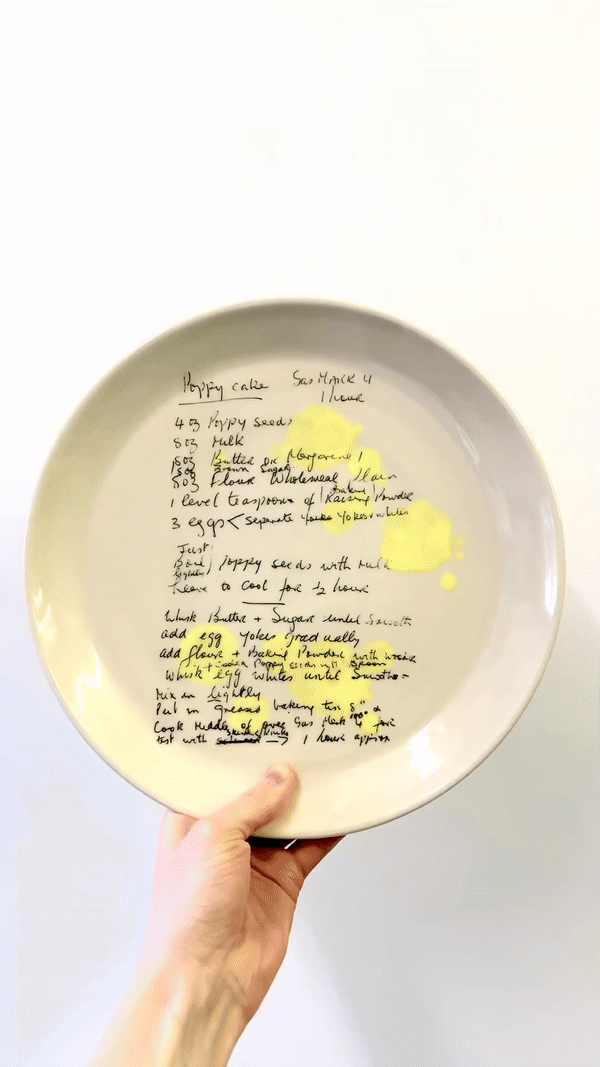 Poppy cake Gas Mark 4
1 hour
4 oz Poppy seeds
8 oz Milk
8 oz Butter or Margarine
8 oz Brown Sugar
8 oz Flour Wholemeal Plain
1 level teaspoon of Baking
Raising Powder
3 eggs < separate yokes yokes + whites
Just
Boil Poppy seeds with milk
lightly
leave to cool for ½ hour
Whisk Butter + Sugar until Smooth
add egg yokes gradually
add flour + Baking Powder with wooden
spoon
+ Poppy seeds
whisk egg whites until Smooth
Mix in lightly
Put in greased baking tin 8"
Cook Middle of oven Gas Mark 4 for
test with → 1 hour approx